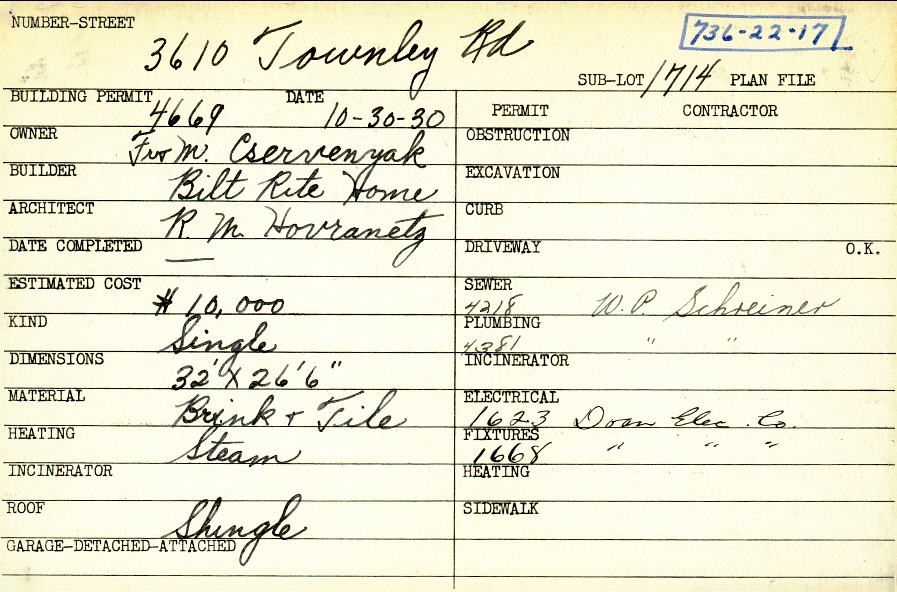 NUMBER-STREET
3610 Townley Rd
736-22-17
SUB-LOT 1714 PLAN FILE
BUILDING PERMIT 4669 DATE 10-30-30
OWNER M. Cservenyak
BUILDER Bilt Rite Home
ARCHITECT R. M. Hovranetz
DATE COMPLETED —
ESTIMATED COST $10,000
KIND Single
DIMENSIONS 32' X 26'6"
MATERIAL Brink + Tile
HEATING Steam
INCINERATOR
ROOF Shingle
GARAGE-DETACHED-ATTACHED
PERMIT CONTRACTOR
OBSTRUCTION
EXCAVATION
CURB
DRIVEWAY O.K.
SEWER
4218 W. P. Schreiner
PLUMBING
4381 " "
INCINERATOR
ELECTRICAL
1623 Doan Elec. Co.
FIXTURES
1668 " " "
HEATING
SIDEWALK